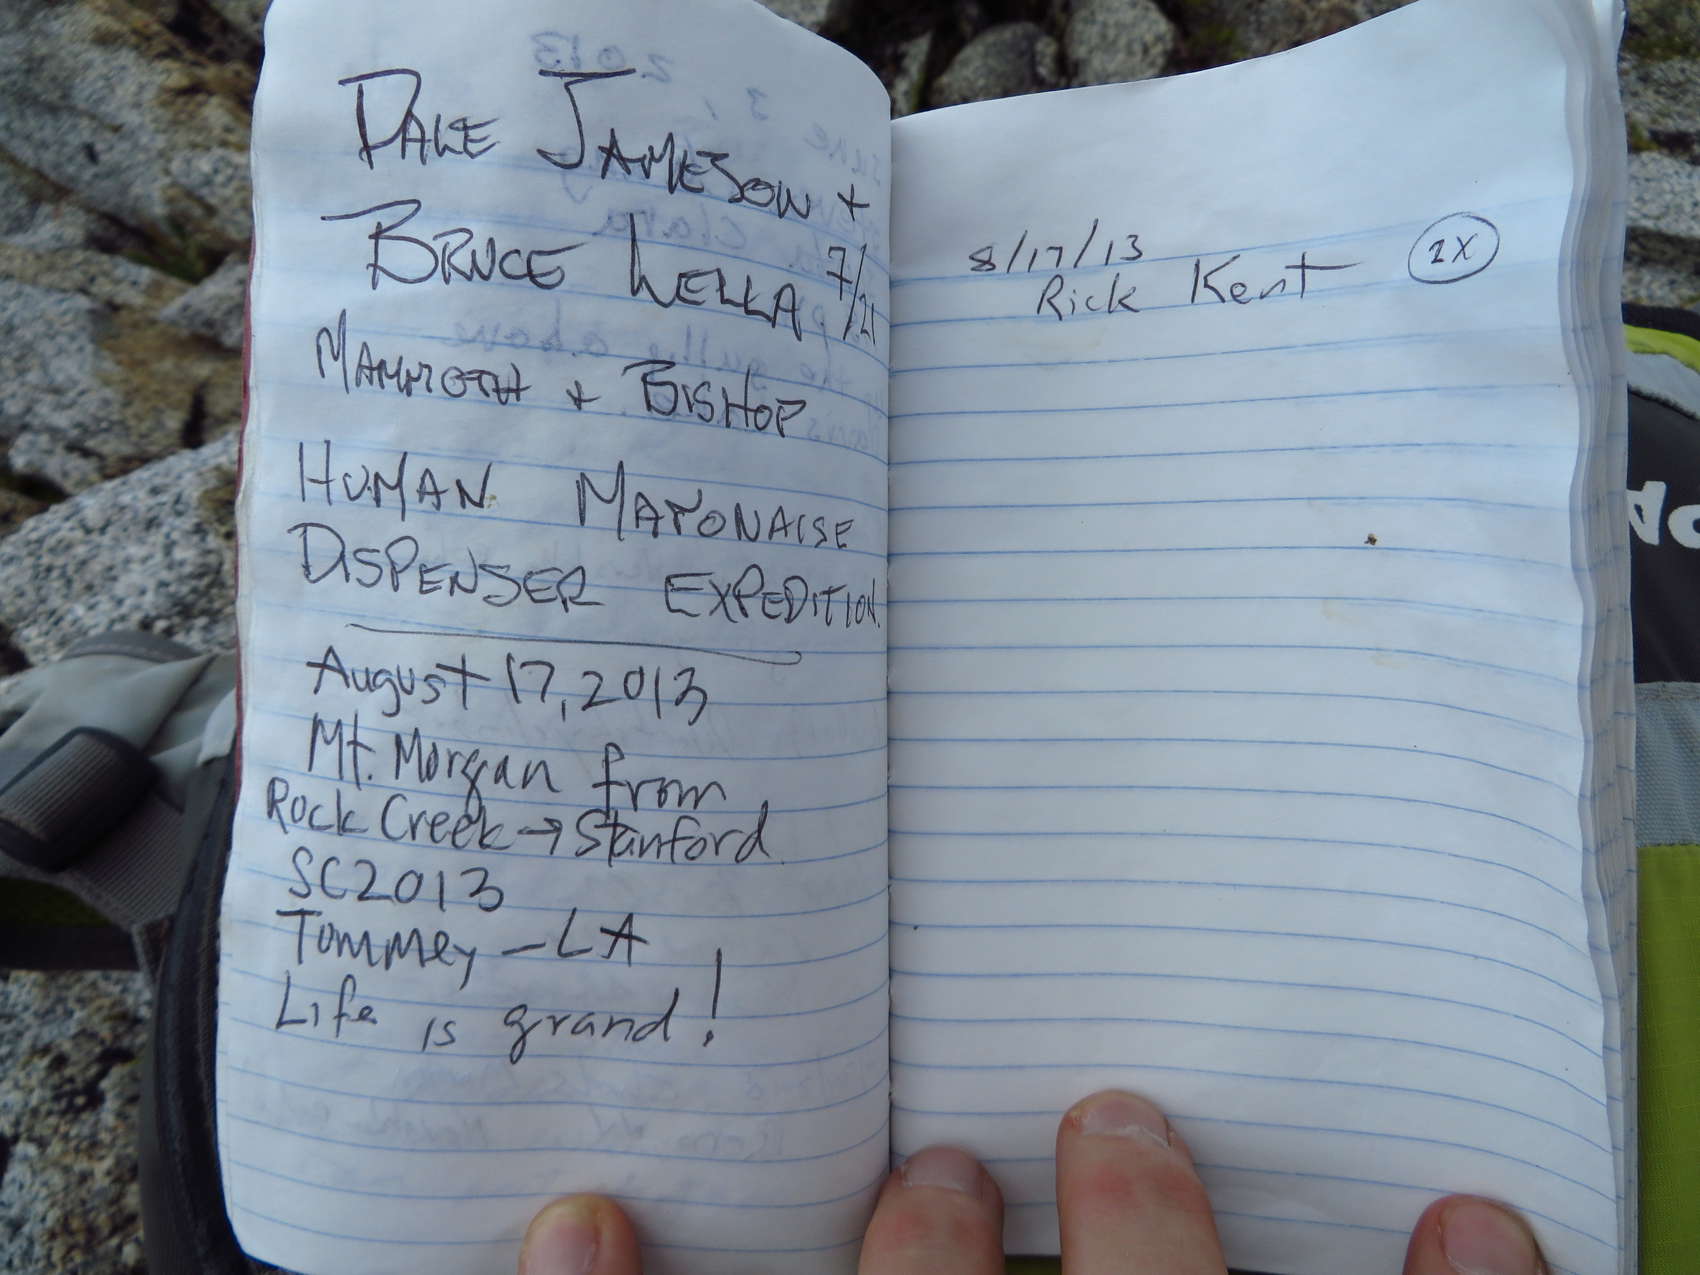 DALE JAMESON +
BRUCE LELLA 7/21
MAMMOTH + BISHOP
HUMAN MAYONAISE
DISPENSER EXPEDITION.
August 17, 2013
Mt. Morgan from
Rock Creek → Stanford
SC2013
Tommey - LA
Life is grand!
8/17/13
Rick Kent 2X